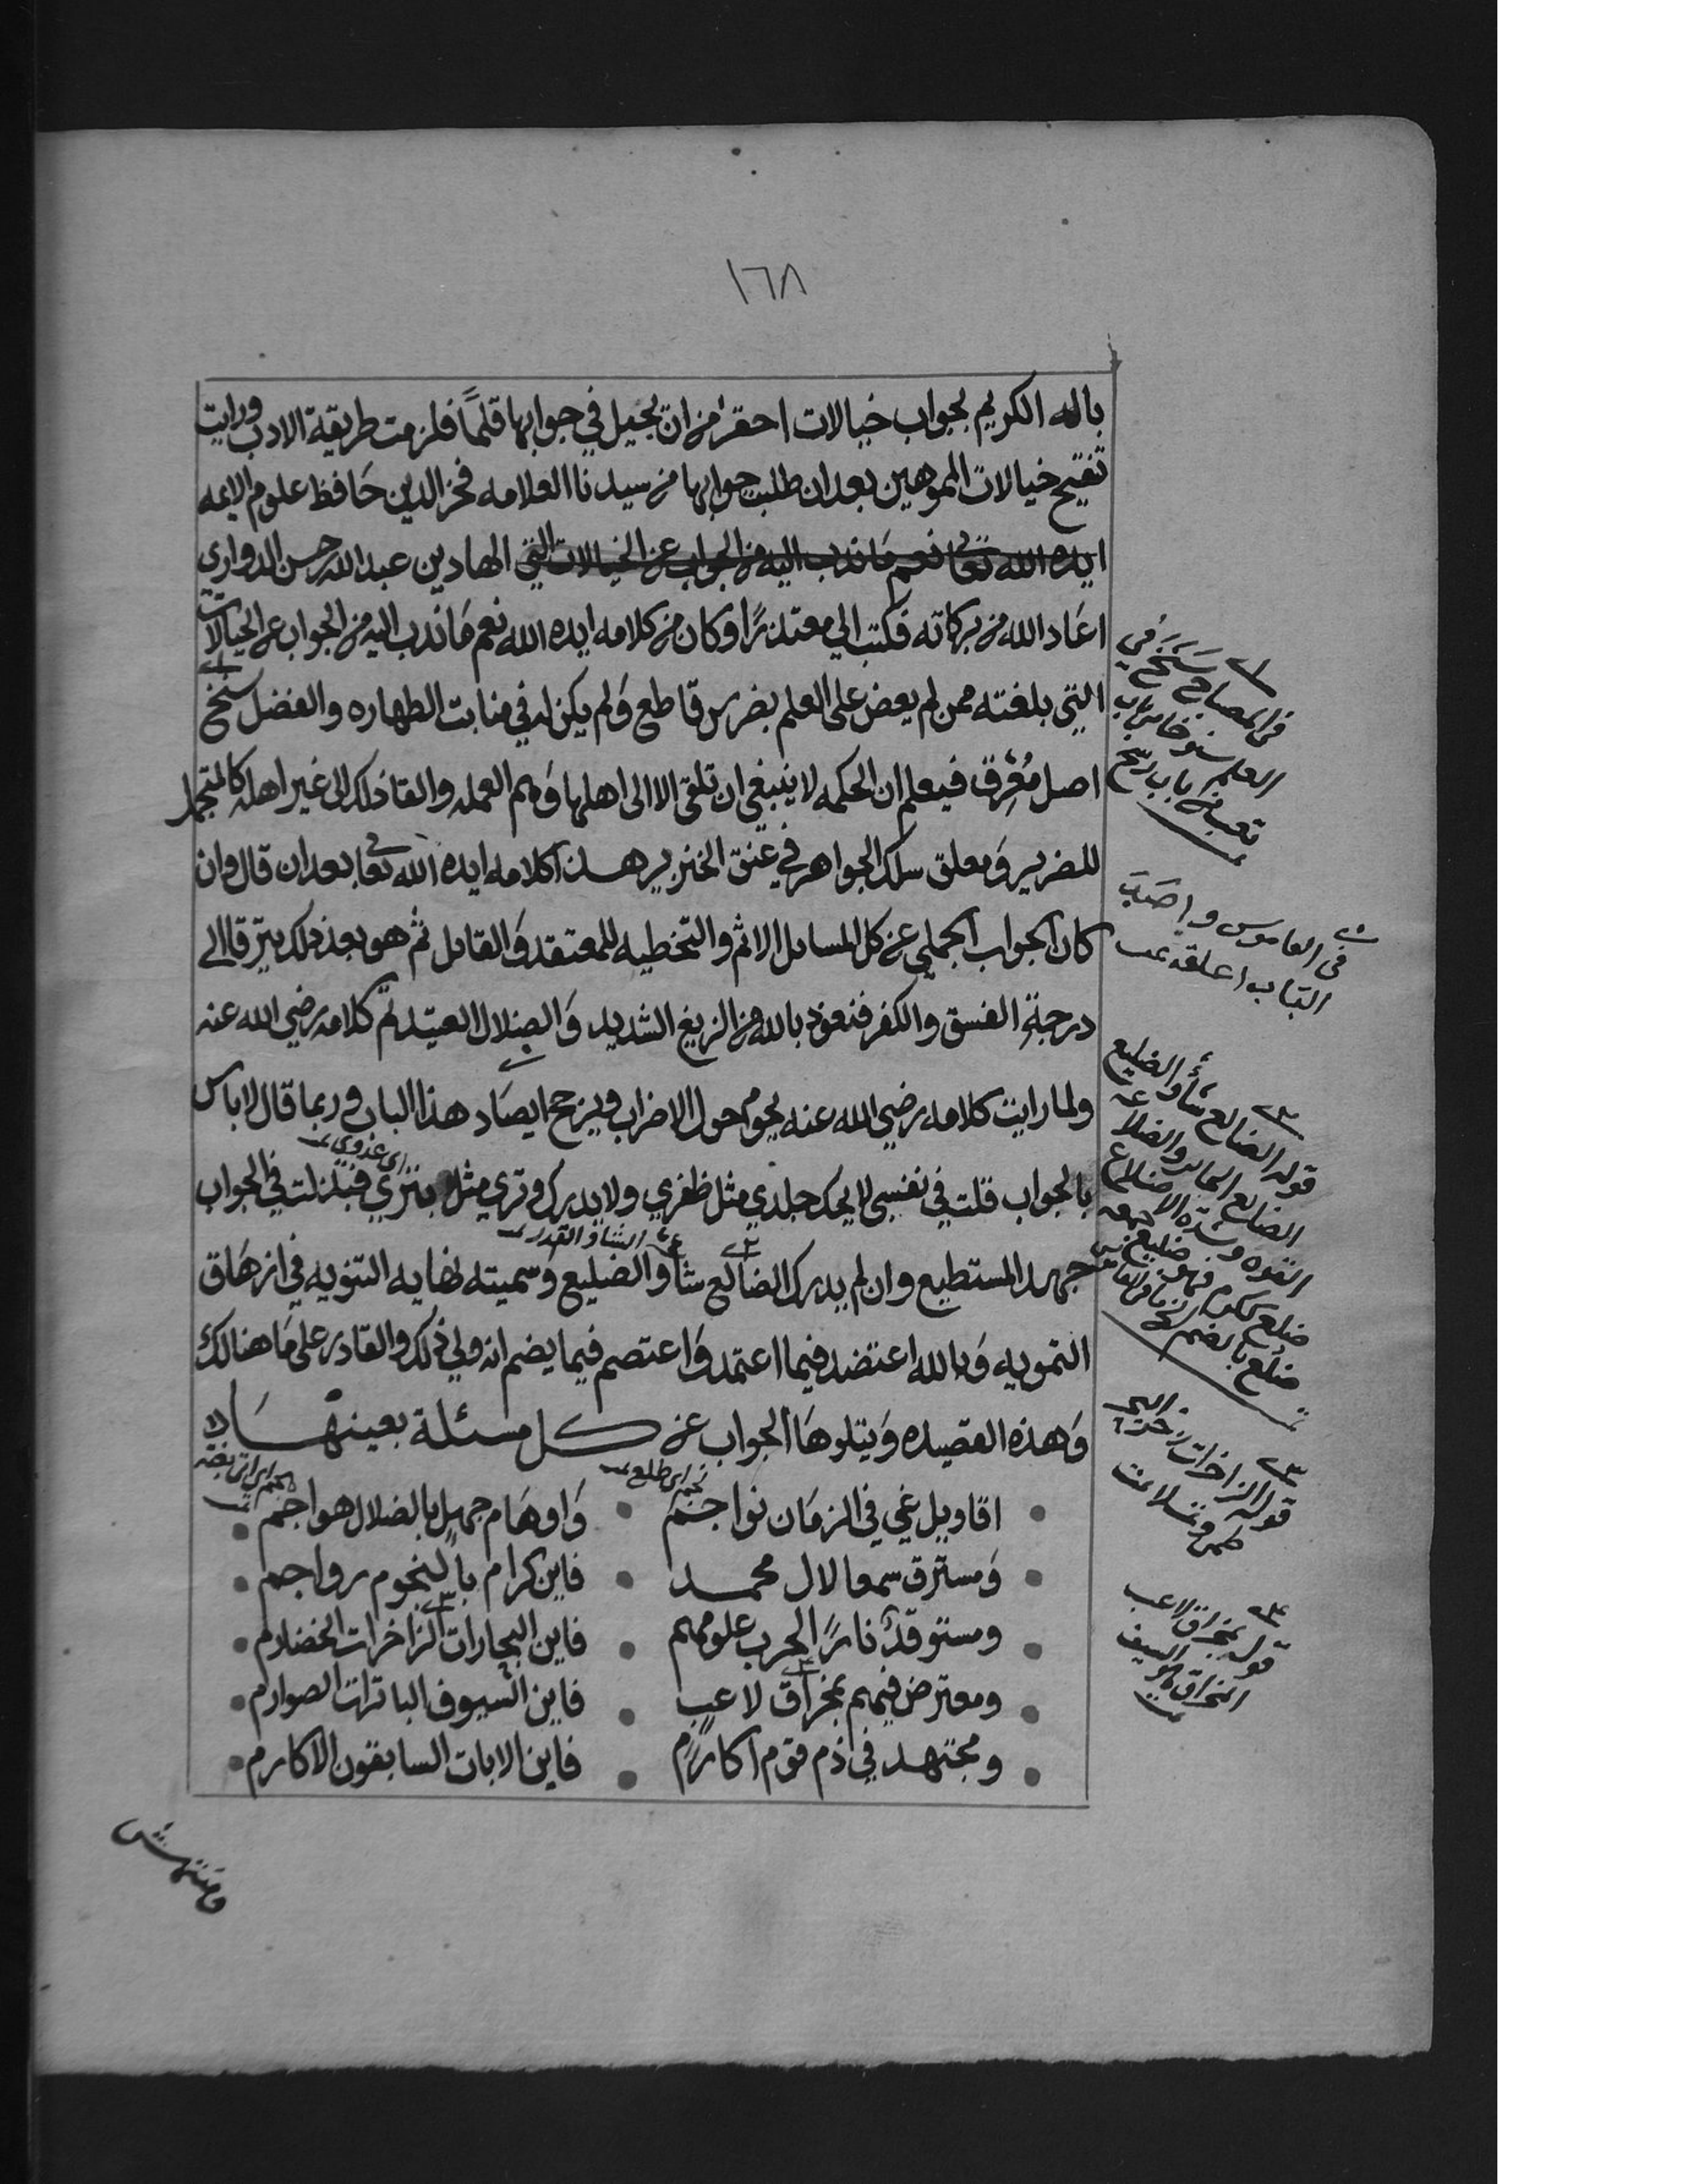 ١٦٨
باله الكريم بجواب خيالات احقر من ان يجيل في جوابها قلمًا فلزمت طريقة الادب ورايت
تقبيح خيالات المموهين بعد ان طلبت جوابها من سيدنا العلامه فخر الدين حافظ علوم الايمه
ايده الله تعالى نعم ما ندب اليه من الجواب عن الخيالات التي الهادي بن عبد الله حسن الدواري
اعاد الله من بركاته فكتب الي معتذرًا وكان من كلامه ايده الله نعم ما ندب اليه من الجواب عن الخيالات
التي بلغته ممن لم يعض على العلم بضرس قاطع ولم يكن له في منابت الطهاره والفضل سنخ
اصل مُعْرِق فيعلم ان الحكمه لا ينبغي ان تلقى الا الى اهلها وهم العمله والقا ذلك الى غير اهله كالمتجمل
للضرير ومعلق سلك الجواهر في عنق الخنزير هذا كلامه ايده الله تعالى بعد ان قال وان
كان الجواب الجملي عن كل المسايل الاثم والتخطيه للمعتقد والقايل ثم هو بعد ذلك يترقا الى
درجة الفسق والكفر فنعوذ بالله من الزيغ الشديد والضلال العتيد تم كلامه رضي الله عنه
ولما رايت كلامه رضي الله عنه يحوم حول الاضراب ويرجح ايصاد هذا الباب وربما قال لا باس
اي غزوي
بالجواب قلت في نفسي لا يحك جلدي مثل ظفري ولا يدرك وتري مثل بتري فبذلت في الجواب
الشاو القدر
جهد المستطيع وان لم يدرك الضالع شأو الضليع وسميته نهايه التنويه في ازهاق
التمويه وبالله اعتضد فيما اعتمد واعتصم فيما يضم انه ولي ذلك والقادر على ما هنالك
وهذه القصيده ويتلوها الجواب عن كل مسئلة بعينها
نجم اي طلع
اقاويل غي في الزمان نواجم • واوهام جهل بالضلال هواجم
ومسترق سمعا لال محمد • فاين كرام بالنجوم رواجم
ومستوقد نارًا لحرب علومهم • فاين البحارات الزاخرات الخضارم
ومعترض فيهم بمخراق لاعب • فاين السيوف الباترات الصوارم
ومجتهد في ذم قوم اكارم • فاين الابات السابقون الاكارم
في المصباح سَنَخَ في
العلم سنوخا من باب
تعب من باب رسخ
في القاموس واصَدَ
الباب اغلقه
قوله الضالع شأو الضليع
الضالع المايل والضلاعه
القوه وشدة الاضلاع
ضلع ككرم فهو ضليع جمعه
ضلع بالضم
قوله الزاخرات زخر البحر
طمى وتملا
قوله بمخراق لاعب
المخراق السيف
ومنتهش